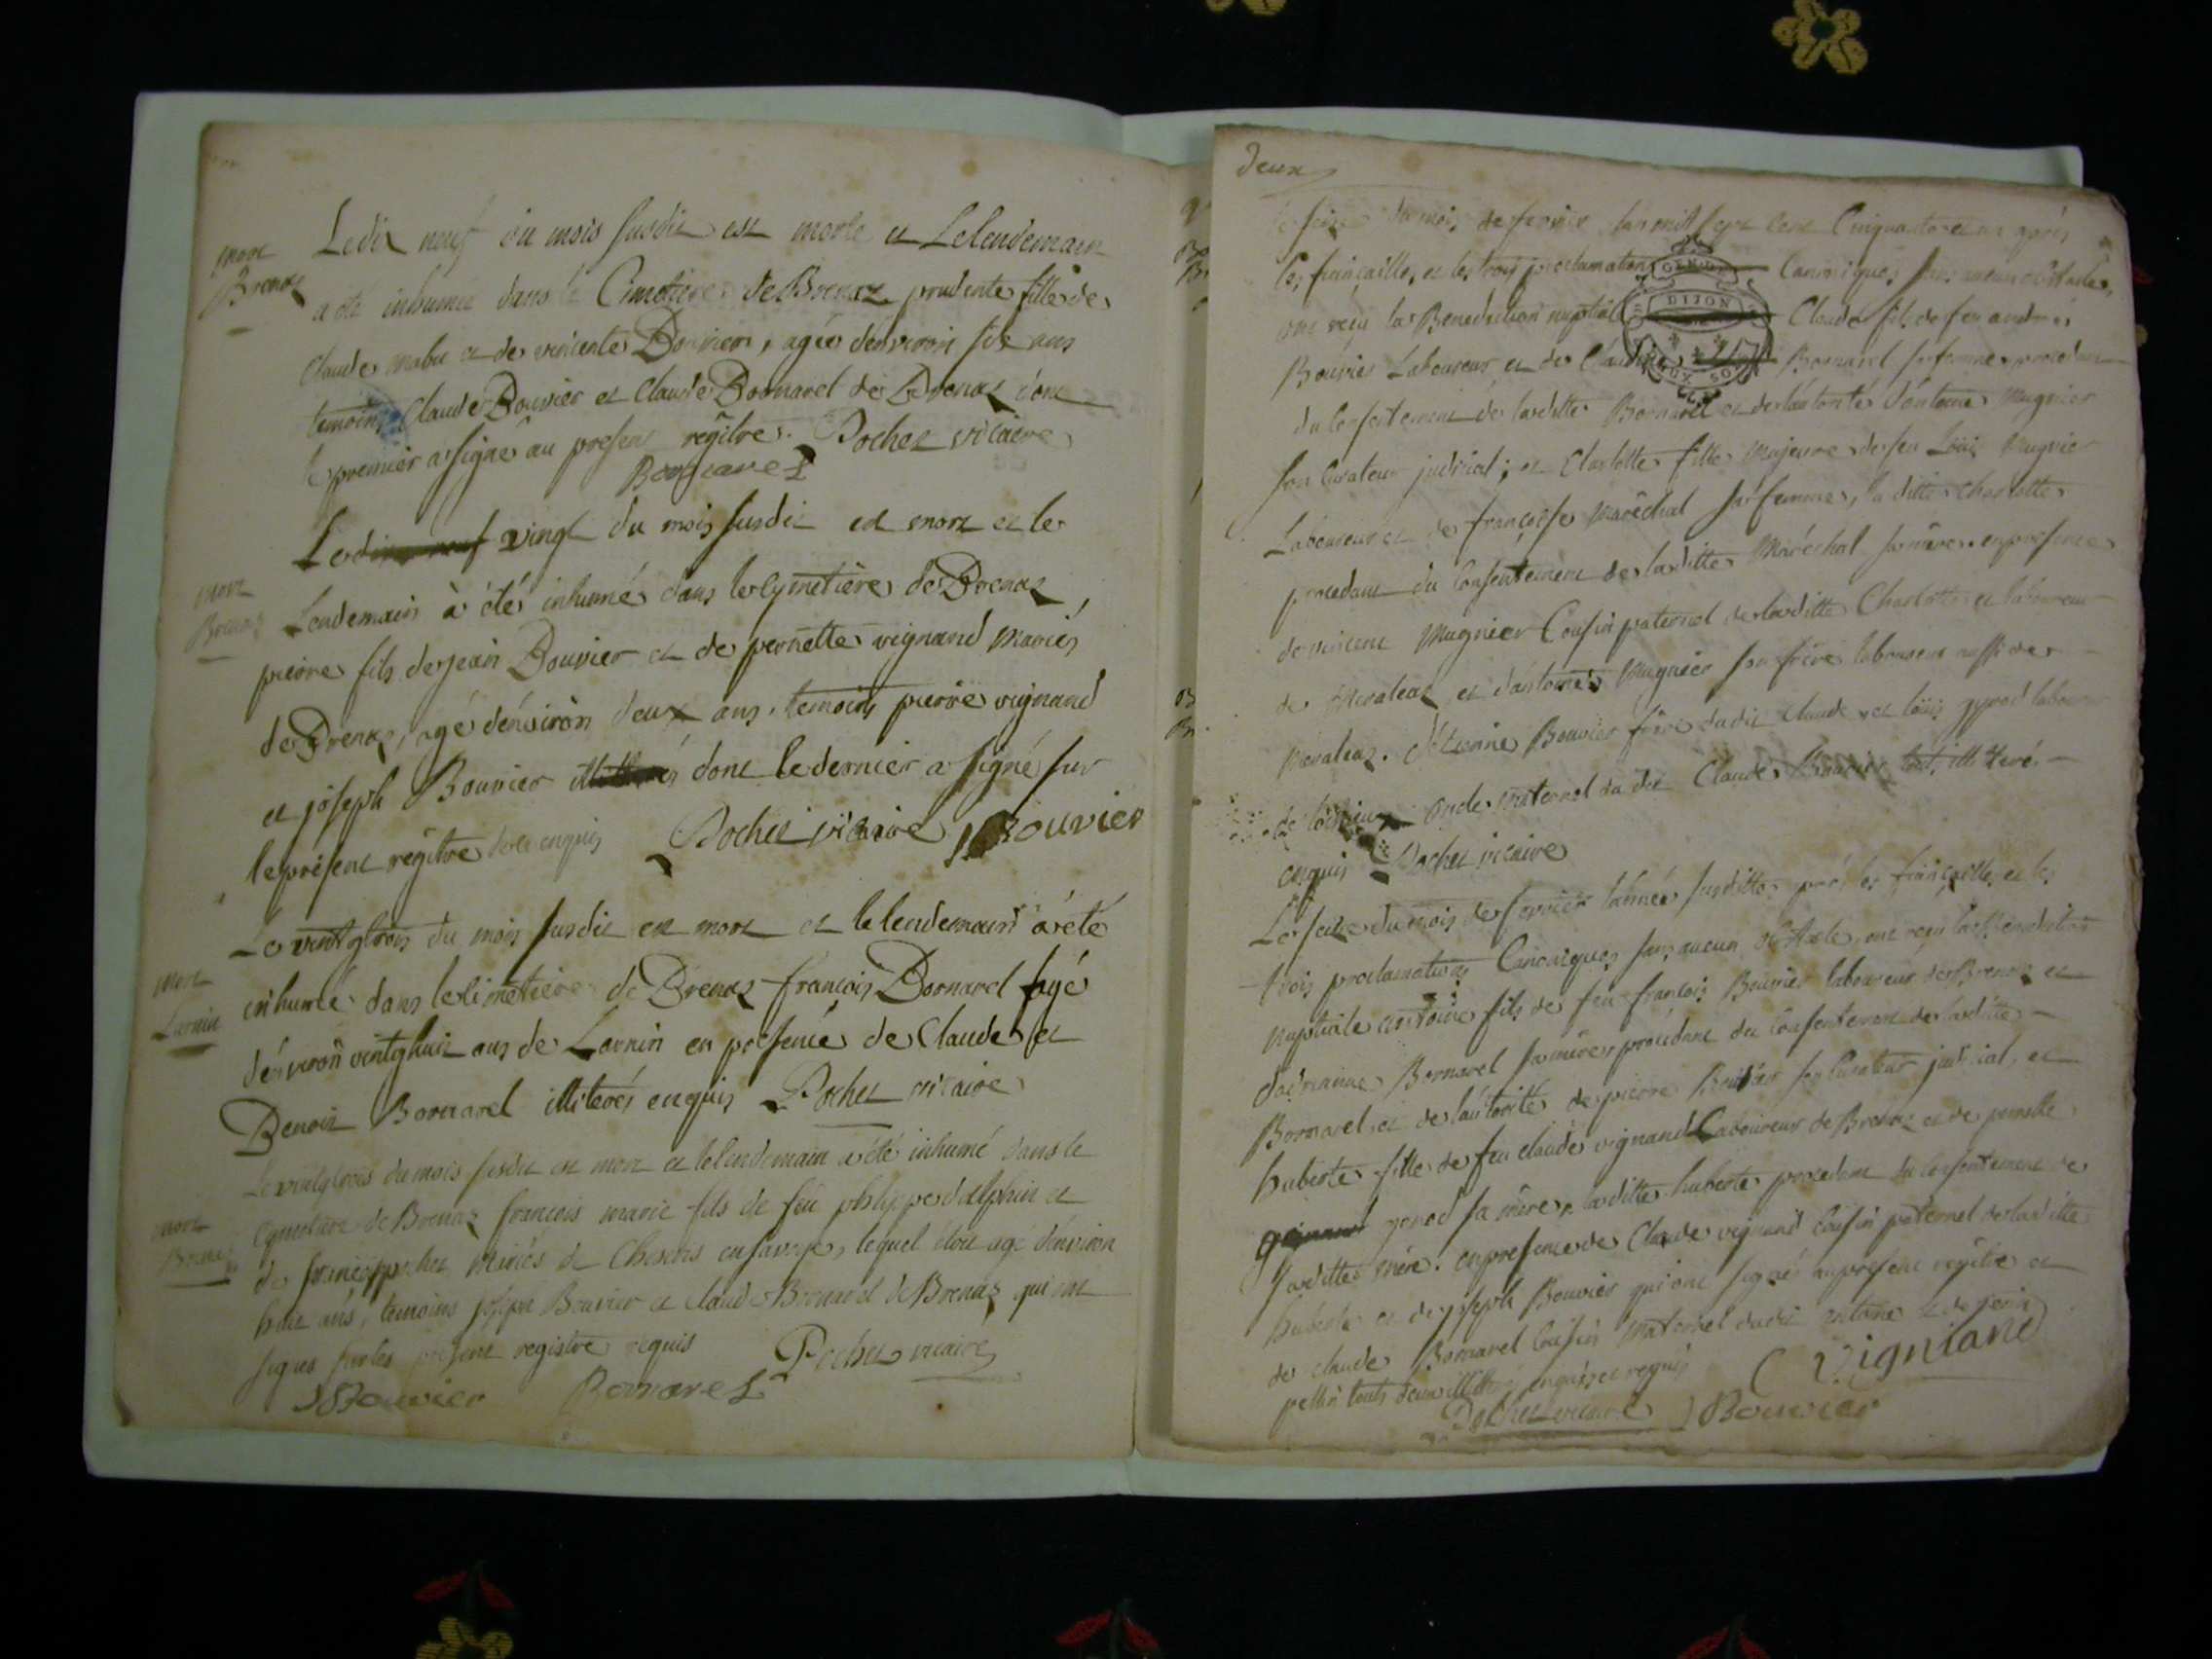 mort
Brenaz
Le dix neuf du mois susdit est morte et Le lendemain
a été inhumée dans le Cimetiere de Brenaz prudente fille de
Claude mabu et de vincente Bouvier, agée d'environ six ans
temoins Claude Bouvier et Claude Bornarel de Brenaz dont
le premier a signé au present régitre. Pochet vicaire
Bornarel
mort
Brenaz
Le dix neuf vingt du mois susdit est mort et le
Lendemain à été inhumé dans le cymetière de Brenaz
pierre fils de jean Bouvier et de pernette vignand Mariés
de Brenaz, agé d'énviron deux ans. temoins pierre vignand
et joseph Bouvier dont le dernier a signé sur
le présent régitre de ce enquis Pochet vicaire JBouvier
mort
Lavnin
Le vintgtrois du mois susdit est mort et le lendemain à été
inhumé dans le cimetiere de Brenaz françois Bornarel agé
d'énviron vintghuit ans de Lavnin en présence de Claude et
Benoit Bornarel illiterés enquis Pochet vicaire
mort
Brenaz
Le vintgtrois du mois susdit est mort et le lendemain a été inhumé dans le
Cymetiere de Brenaz françois marie fils de feu philippe dalphin et
de françoise pochet Mariés de Chenens en savoye, lequel étoit agé d'énviron
huit ans, temoins joseph Bouvier et claude Bornarel de Brenaz qui ont
signés sur les présent registre requis
JBouvier Bornarel Pochet vicaire
deux
Le seize du mois de fevrier l'an mill sept cent Cinquante et un après
les fiançailles et les trois proclamations Canoniques sans aucun obstacle,
GEN DE
DIJON
DEUX SOLS
ont reçu la Benediction nuptiale Claude fils de feu andré
Bouvier Laboureur et de Claudine Bornarel sa femme procedant
du Consentement de laditte Bornarel et de l'autorité d'antoine Mugnier
son Curateur judicial; et Charlotte fille Majeure de feu Loüis Mugnier
Laboureur et de françoise Maréchal sa femme, la ditte Charlotte
procedant du Consentement de laditte Maréchal sa mère. en presence
de vincent Mugnier Cousin paternel de laditte Charlotte et laboureur
de et d'antoine Mugnier son frère laboureur aussi de
d'étienne Bouvier frère dudit Claude et loüis gynod laboureur
de oncle maternel du dit Claude Bouvier touts illiteré
enquis Pochet vicaire
Le seize du mois de fevrier l'année susditte après les fiançailles et les
trois proclamations Canoniques sans aucun obstacle, ont reçu la Benediction
nuptiale antoine fils de feu françois Bouvier laboureur de Brenaz et
d'adrianne Bornarel sa mère, procedant du Consentement de laditte
Bornarel, et de l'autorité de pierre Bouvier son Curateur judicial, et
huberte fille de feu claude vignand Laboureur de Brenaz et de pernette
gynod sa mère, laditte huberte procedant du Consentement de
laditte mère. en presence de Claude vignand Cousin paternel de laditte
huberte et de joseph Bouvier qui ont signés au present régitre et
de claude Bornarel Cousin maternel dudit antoine et de jerin
touts deux illitterés enquis et requis C Vigniand
Pochet vicaire JBouvier